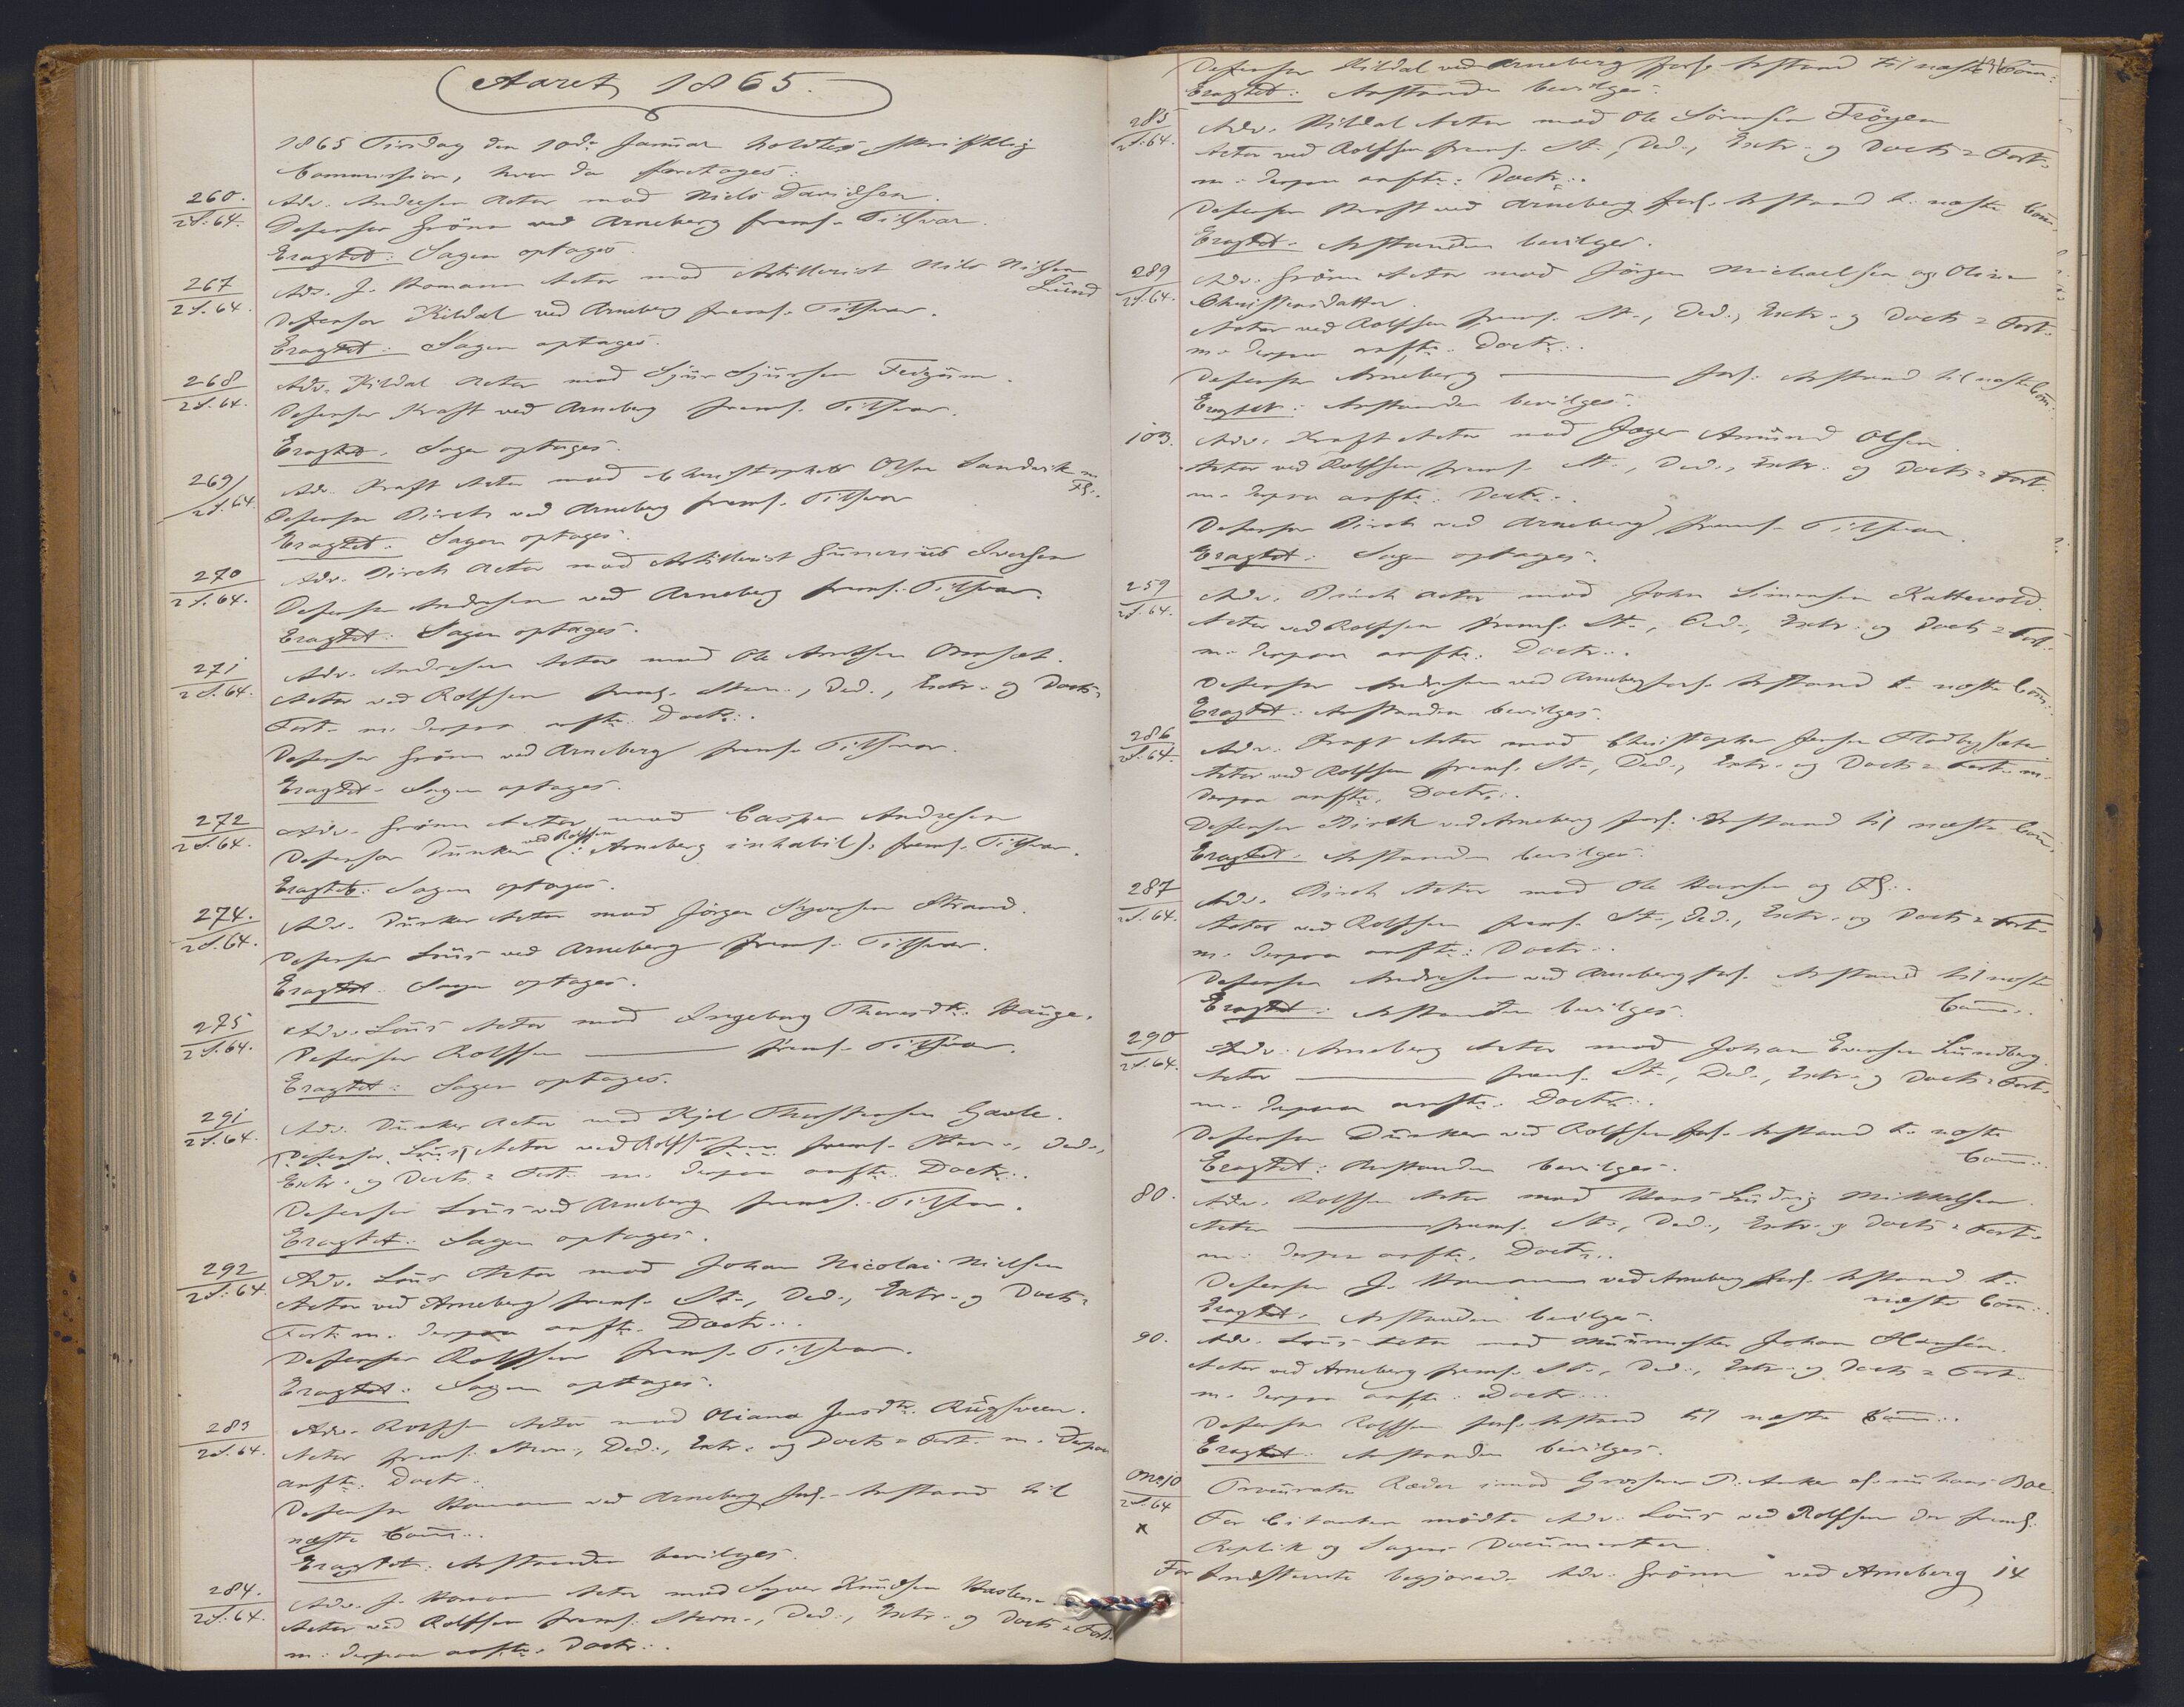 Aaret 1865.
1865 Tirsdag den 10de Januar holdtes skriftlig
Commission, hvor da foretoges:
260.
2 S. 64.
Adv. Andresen Actor mod Niels Davidsen.
Defensor Grönn ved Arneberg freml. Tilsvar.
Eragtet: Sagen optages.
267
2 S. 64.
Adv. J. Homann Actor mod Artillerist Nils Nilsen
Lund
Defensor Kildal ved Arneberg freml. Tilsvar.
Eragtet: Sagen optages.
268
2 S. 64.
Adv. Kildal Actor mod Sjur Sjursen
Defensor Kraft ved Arneberg freml. Tilsvar.
Eragtet: Sagen optages.
269
2 S. 64.
Adv. Kraft Actor mod Christopher Olsen Sandvik m
Fl.
Defensor Birch ved Arneberg freml. Tilsvar
Eragtet: Sagen optages.
270
2 S. 64.
Adv. Birch Actor mod Artillerist Gunerius Iversen
Defensor Andresen ved Arneberg freml. Tilsvar.
Eragtet: Sagen optages.
271
2 S. 64.
Adv. Andresen Actor mod Ole Arntsen
Actor ved Rolfsen freml. Stevn., Ded., Extr. og Docts
Fort. m. derpaa anfte. Doctr.
Defensor Grönn ved Arneberg freml. Tilsvar.
Eragtet: Sagen optages.
272
2 S. 64.
Adv. Grönn Actor mod Casper Andresen
ved Rolfsen
Defensor Dunker (: Arneberg inhabil): freml. Tilsvar.
Eragtet: Sagen optages.
274.
2 S. 64.
Adv. Dunker Actor mod Jörgen Syversen Strand.
Defensor Lous ved Arneberg freml. Tilsvar.
Eragtet: Sagen optages.
275
2 S. 64.
Adv. Lous Actor mod Ingeborg Thoresdtr. Hauge.
Defensor Rolfsen ——— freml. Tilsvar.
Eragtet: Sagen optages.
291
2 S. 64.
Adv. Dunker Actor mod Kjel Thorstensen
Defensor Lous Actor ved Rolfsen freml. Stevn., Ded.,
Extr. og Docts Fort. m. derpaa anfte. Doctr.
Defensor Lous ved Arneberg freml. Tilsvar.
Eragtet: Sagen optages.
292
2 S. 64.
Adv. Lous Actor mod Johan Nicolai Nielsen
Actor ved Arneberg freml. St., Ded., Extr. og Docts
Fort. m. derpaa anfte. Doctr.
Defensor Rolfsen freml. Tilsvar.
Eragtet: Sagen optages.
283
2 S. 64.
Adv. Rolfsen Actor mod Oliana Jensdtr.
Actor freml. Stevn., Ded., Extr. og Docts Fort. m. derpaa
anfte. Doctr.
Defensor Homann ved Arneberg forl. Anstand til
næste Com.
Eragtet: Anstanden bevilges.
284.
2 S. 64.
Adv. J. Homann Actor mod Syver Knudsen
Actor ved Rolfsen freml. Stevn., Ded., Extr. og Docts Fort.
m. derpaa anfte. Doctr.
Defensor Kildal ved Arneberg forl. Anstand til næste Com:
Eragtet: Anstanden bevilges.
285
2 S. 64.
Adv. Kildal Actor mod Ole Sörensen Fröyen
Actor ved Rolfsen freml. St., Ded., Extr. og Docts Fort.
m. derpaa anfte. Doctr.
Defensor Kraft ved Arneberg forl. Anstand t. næste Com.
Eragtet: Anstanden bevilges.
289
2 S. 64.
Adv. Grönn Actor mod Jörgen Michaelsen og Oline
Christensdatter.
Actor ved Rolfsen freml. St., Ded., Extr. og Docts Fort.
m. derpaa anfte. Doctr.
Defensor Arneberg ——— forl. Anstand til næste Com.
Eragtet: Anstanden bevilges.
103.
Adv. Kraft Actor mod Jæger Amund Olsen
Actor ved Rolfsen freml. St., Ded., Extr. og Docts Fort.
m. derpaa anfte. Doctr.
Defensor Birch ved Arneberg freml. Tilsvar.
Eragtet: Sagen optages.
259
2 S. 64.
Adv. Birch Actor mod John Simensen Kattevold.
Actor ved Rolfsen freml. St., Ded., Extr. og Docts Fort.
m. derpaa anfte. Doctr.
Defensor Andresen ved Arneberg forl. Anstand t. næste Com.
Eragtet: Anstanden bevilges.
286
2 S. 64.
Adv. Kraft Actor mod Christopher Jensen
Actor ved Rolfsen freml. St., Ded., Extr. og Docts Fort. m.
derpaa anfte. Doctr.
Defensor Birch ved Arneberg forl. Anstand til næste Com.
Eragtet: Anstanden bevilges.
287
2 S. 64.
Adv. Birch Actor mod Ole Hansen og Fl.
Actor ved Rolfsen freml. St., Ded., Extr. og Docts Fort.
m. derpaa anfte. Doctr.
Defensor Andresen ved Arneberg forl. Anstand til næste
Com.
Eragtet: Anstanden bevilges.
290
2 S. 64.
Adv. Arneberg Actor mod Johan Evensen Lundberg.
Actor ——— freml. St., Ded., Extr. og Docts Fort.
m. derpaa anfte. Doctr.
Defensor Dunker ved Rolfsen forl. Anstand t. næste
Com.
Eragtet: Anstanden bevilges.
80.
Adv. Rolfsen Actor mod Hans Ludvig Mikkelsen.
Actor ——— freml. St., Ded., Extr. og Docts Fort.
m. derpaa anfte. Doctr.
Defensor J. Homann ved Arneberg forl. Anstand t.
næste Com.
Eragtet: Anstanden bevilges.
90.
Adv. Lous Actor mod Muurmester Johan Hansen.
Actor ved Arneberg freml. St., Ded., Extr. og Docts Fort.
m. derpaa anfte. Doctr.
Defensor Rolfsen forl. Anstand til næste Com.
Eragtet: Anstanden bevilges.
2 S. 64
x
Procurator Ræder imod Grosserer P. Anker el. nu hans Boe.
For Citanten mödte Adv. Lous ved Rolfsen der freml.
Replik og Sagens Documenter.
For Indstevnte begjærede Adv. Grönn ved Arneberg 14